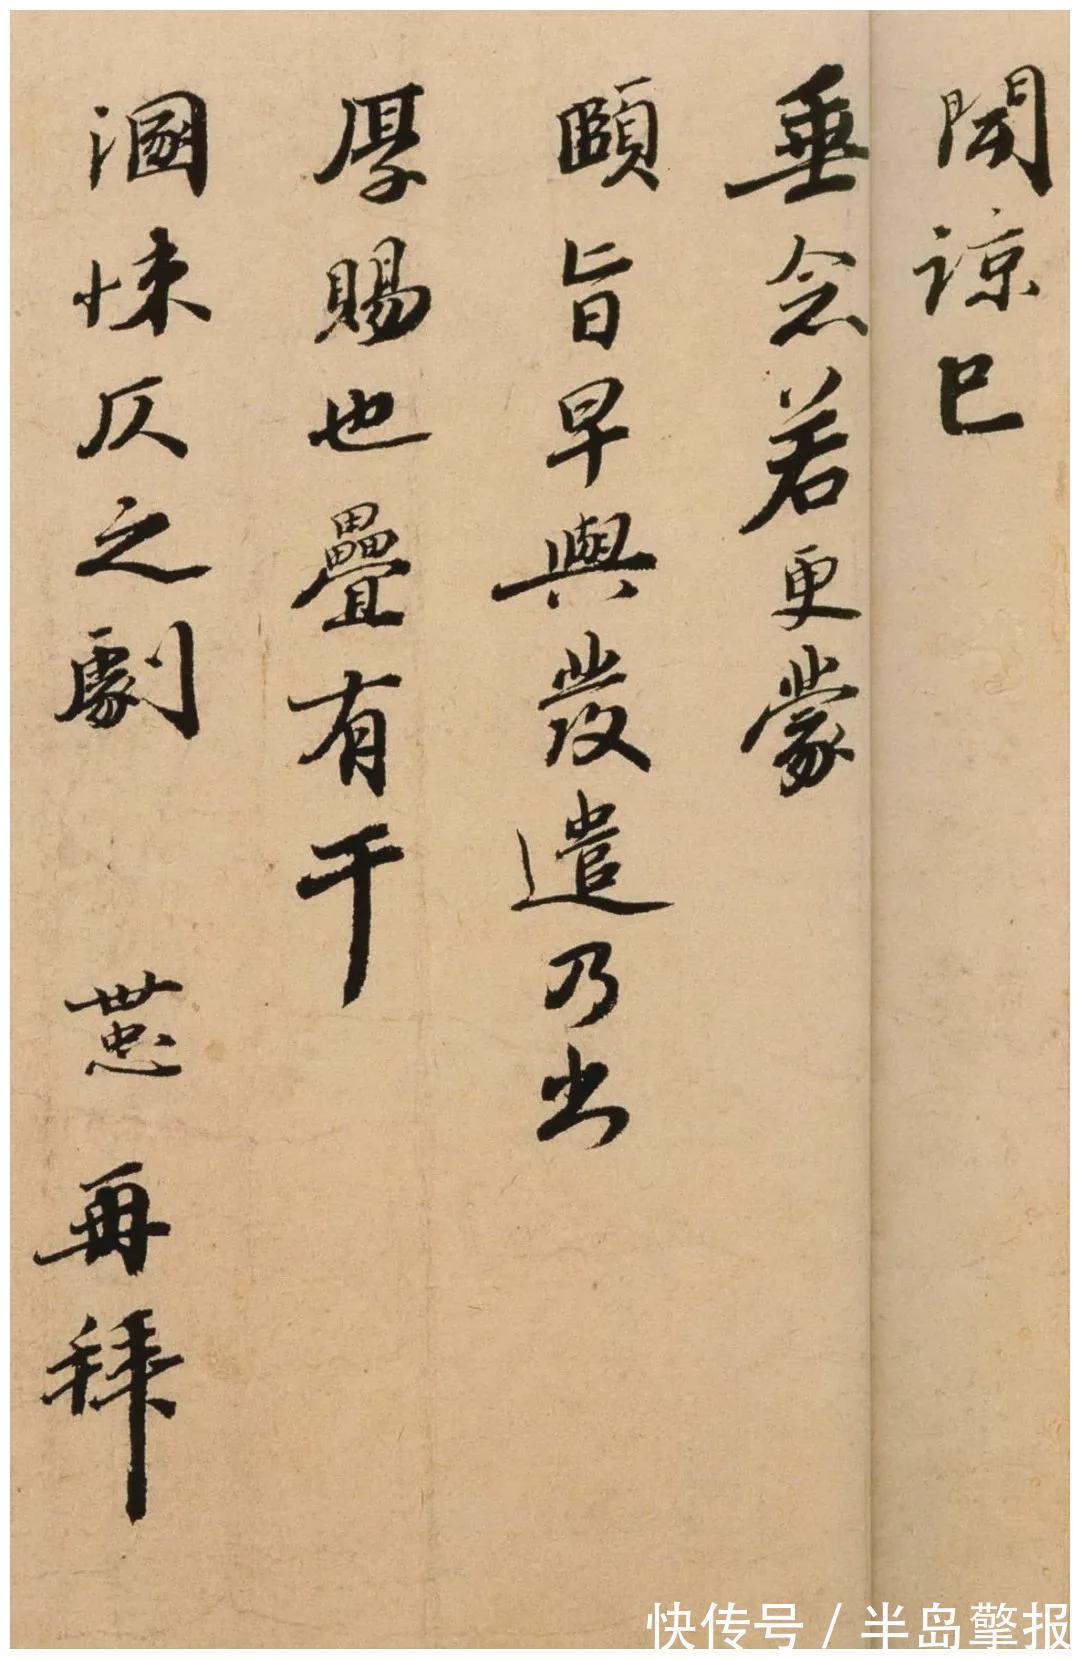 聞諒已
垂念若更蒙
頤旨早與發遣乃出
厚賜也疊有干
溷悚仄之劇 再拜
快传号 / 半岛擎报